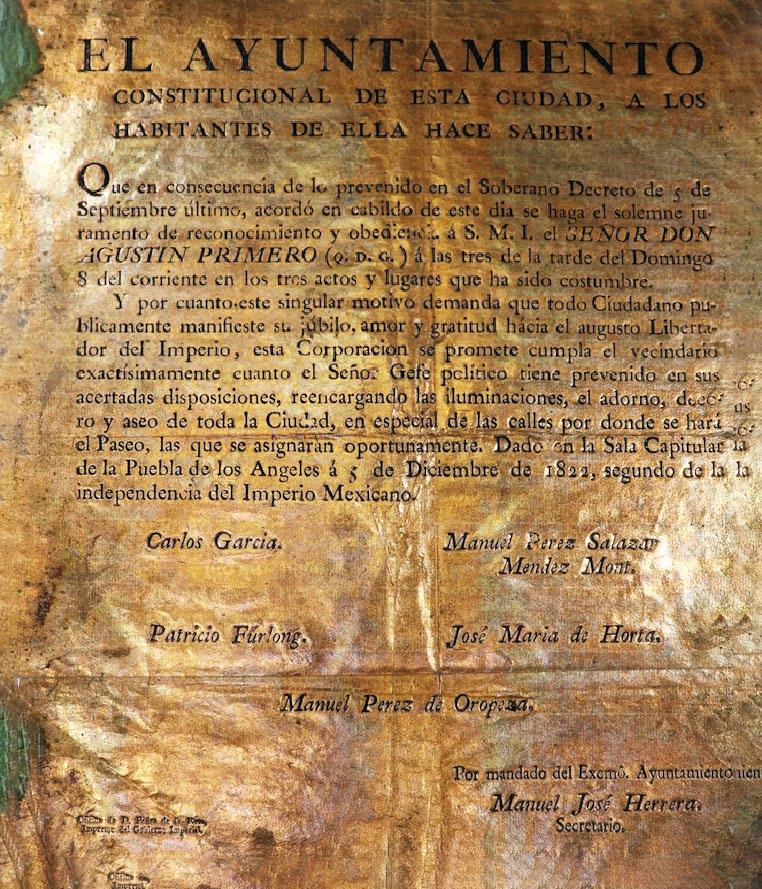 EL AYUNTAMIENTO
CONSTITUCIONAL DE ESTA CIUDAD, A LOS
HABITANTES DE ELLA HACE SABER:
Que en consecuencia de lo prevenido en el Soberano Decreto de 5 de
Septiembre último, acordó en cabildo de este dia se haga el solemne ju-
ramento de reconocimiento y obediencia á S. M. I. el SEÑOR DON
AGUSTIN PRIMERO (Q. D. G.) á las tres de la tarde del Domingo
8 del corriente en los tres actos y lugares que ha sido costumbre.
Y por cuanto este singular motivo demanda que todo Ciudadano pu-
blicamente manifieste su júbilo, amor y gratitud hácia el augusto Liberta-
dor del Imperio, esta Corporacion se promete cumpla el vecindario
exactísimamente cuanto el Señor Gefe político tiene prevenido en sus
acertadas disposiciones, reencargando las iluminaciones, el adorno, deco-
ro y aseo de toda la Ciudad, en especial de las calles por donde se hará
us
el Paseo, las que se asignarán oportunamente. Dado en la Sala Capitular
la
de la Puebla de los Angeles á 5 de Diciembre de 1822, segundo de la
la
independencia del Imperio Mexicano.
Carlos Garcia.
Manuel Perez Salazar
Mendez Mont.
Patricio Fúrlong.
José Maria de Horta.
Manuel Perez de Oropeza.
Por mandado del Excmô. Ayuntamiento
Manuel José Herrera.
Secretario.
Oficina de D. Pedro de la Rosa,
Impresor del Gobierno Imperial.